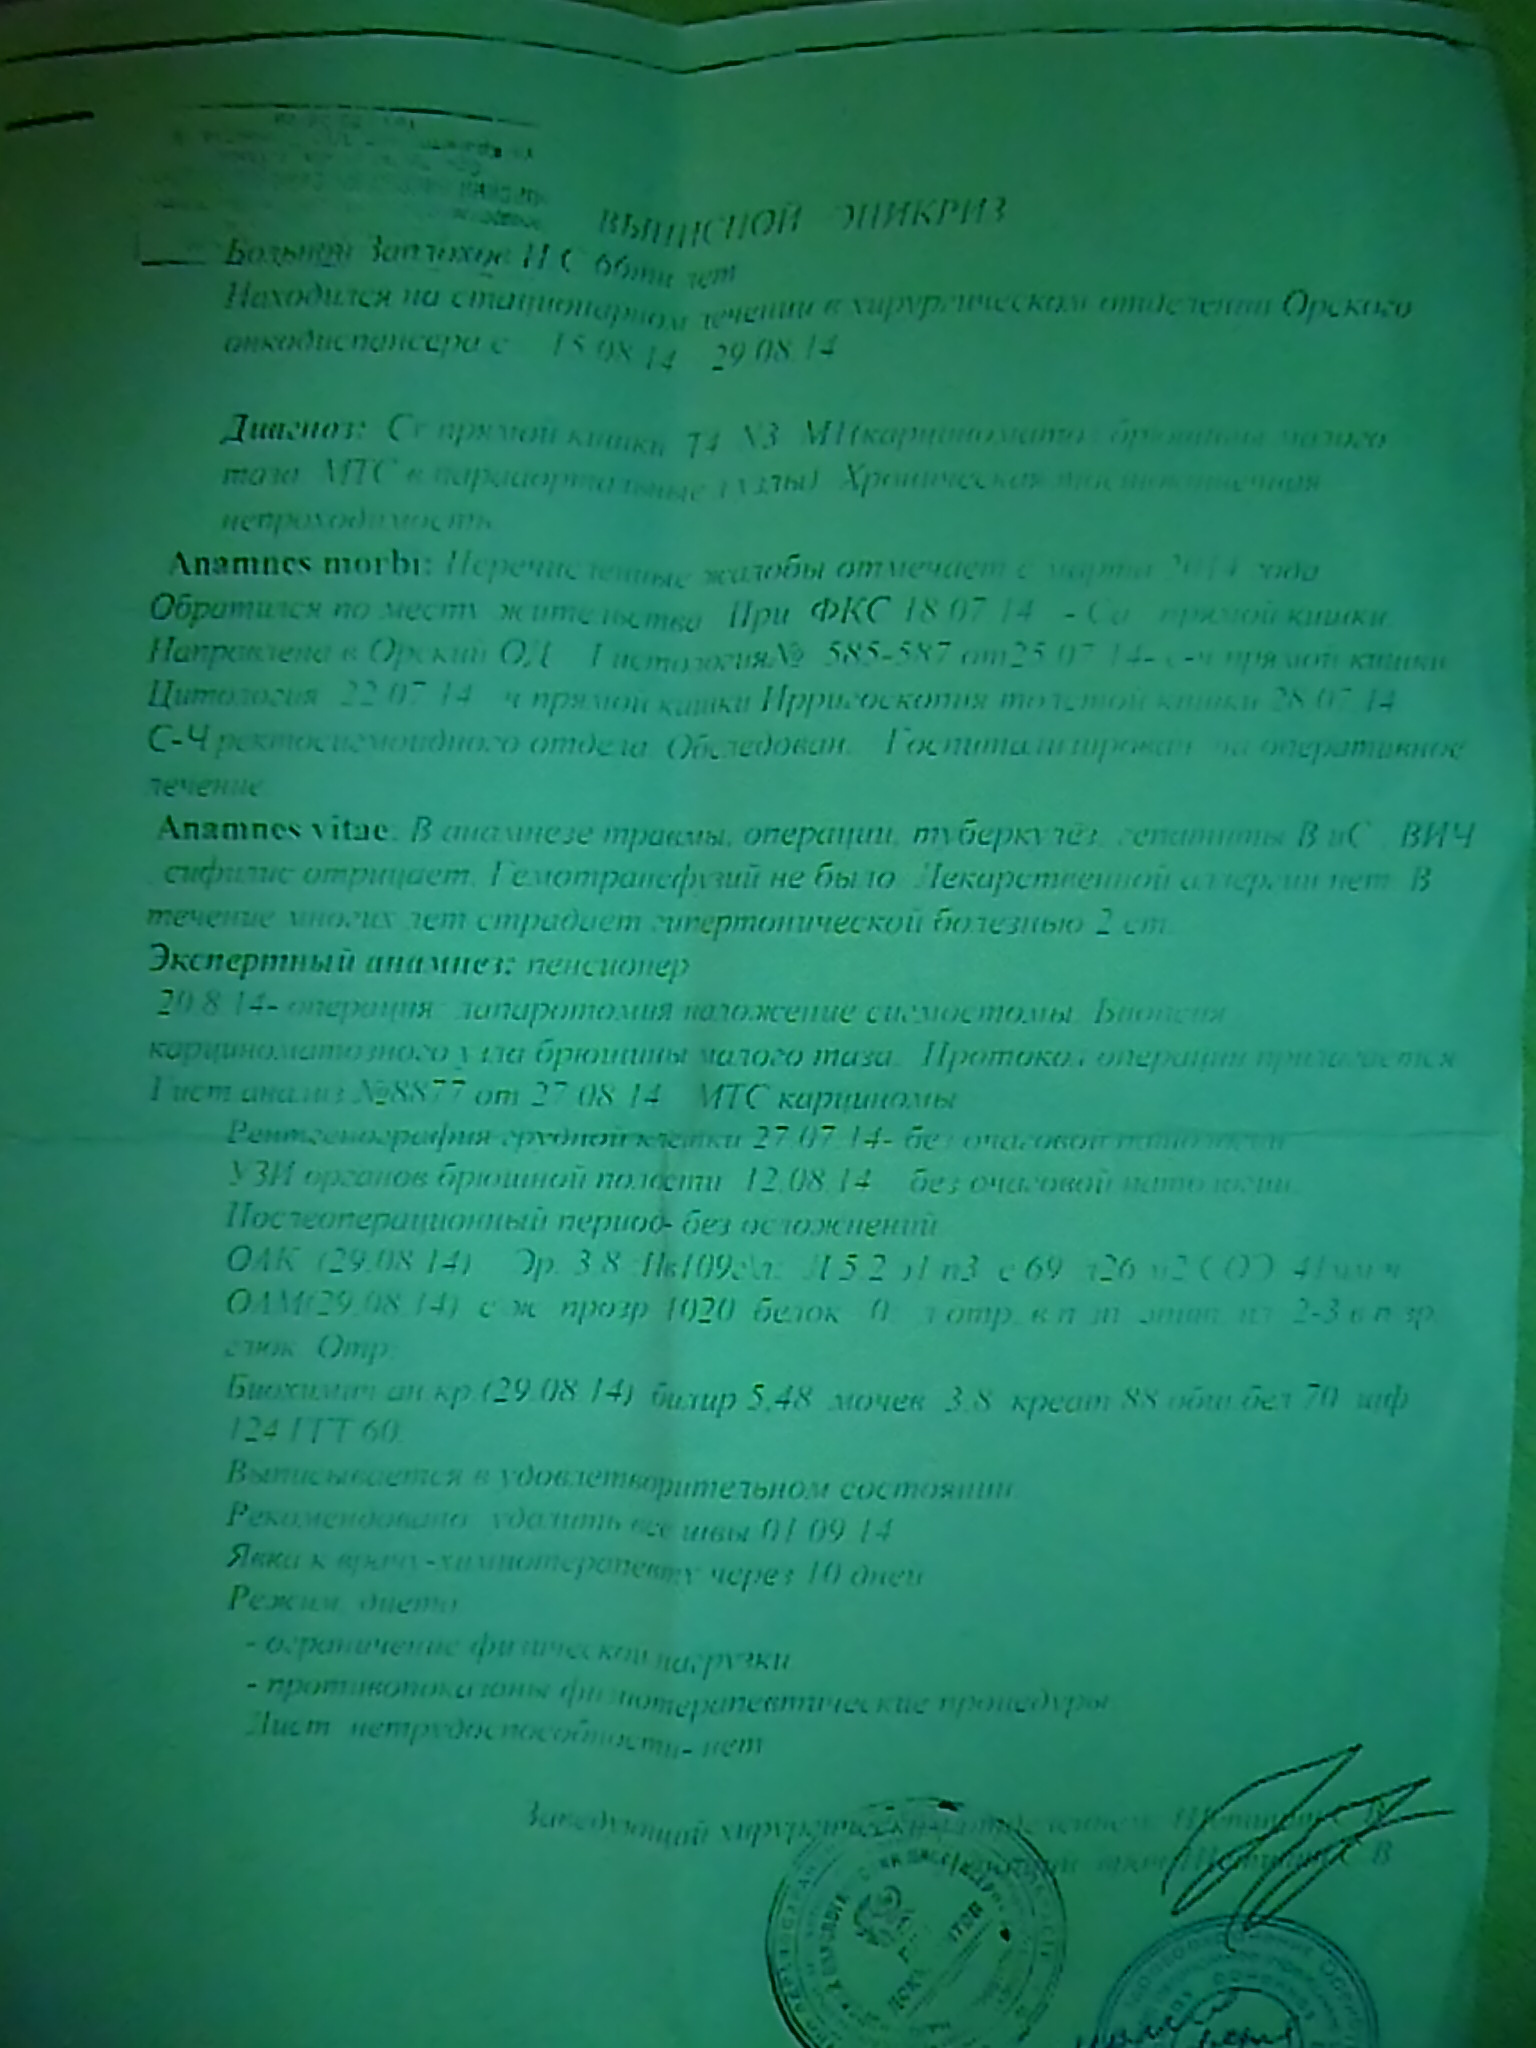 ВЫПИСНОЙ ЭПИКРИЗ
Больной И С 66ти лет
Находился на стационарном лечении в хирургическом отделении Орского
онкодиспансера с 15.08.14 29.08.14
Диагноз: Cr прямой кишки T4 N3 М1(карциноматоз брюшины малого
таза. МТС в парааортальные узлы). Хроническая толстокишечная
непроходимость
Anamnes morbi: Перечисленные жалобы отмечает с марта 2014 года
Обратился по месту жительства При ФКС 18.07.14 - Ca прямой кишки.
Направлена в Орский ОД Гистология№ 585-587 от25.07.14- с-ч прямой кишки
Цитология 22.07.14 ч прямой кишки Ирригоскопия толстой кишки 28.07.14
С-Ч ректосигмоидного отдела. Обследован. Госпитализирован на оперативное
лечение
Anamnes vitae. В анамнезе травмы, операции, туберкулёз, гепатиты В иС , ВИЧ
, сифилис отрицает. Гемотрансфузий не было. Лекарственной аллергии нет. В
течение многих лет страдает гипертонической болезнью 2 ст.
Экспертный анамнез: пенсионер
20.8.14- операция: лапаротомия наложение сигмостомы. Биопсия
карциноматозного узла брюшины малого таза. Протокол операции прилагается
Гист анализ №8877 от 27.08.14 МТС карциномы
Рентгенография грудной клетки 27.07.14- без очаговой патологии
УЗИ органов брюшной полости 12.08.14 без очаговой патологии.
Послеоперационный период- без осложнений
ОАК (29.08.14) Эр. 3.8 Нв109г\л; Л 5.2 э1 п3 с 69 л26 м2 СОЭ 41мм\ч
ОАМ(29.08.14) с\ж прозр 1020 белок 0; отр. в п\зр 2-3 в п\зр,
глюк. Отр.
Биохимич ан.кр.(29.08.14) билир 5,48 мочев 3.8 креат 88 общ.бел 70 щф
124 ГГТ 60.
Выписывается в удовлетворительном состоянии
Рекомендовано: удалить все швы 01.09.14
Явка к врачу-химиотерапевту через 10 дней
Режим, диета
- ограничение физической нагрузки
- противопоказаны физиотерапевтические процедуры
Лист нетрудоспособности- нет
Заведующий хирургическим отделением С.В.
врач С.В